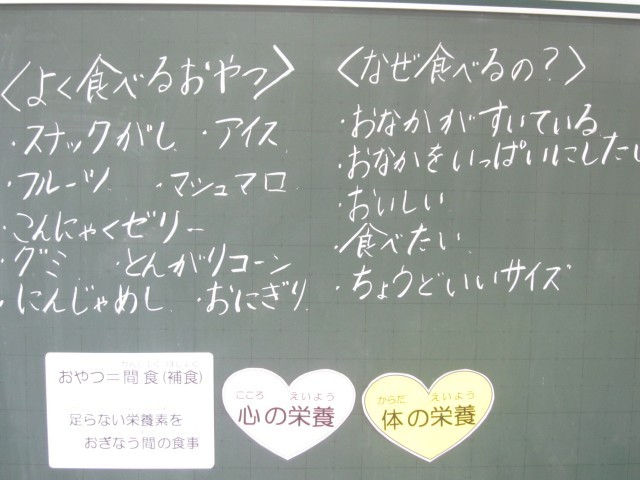 〈よく食べるおやつ〉
・スナックがし ・アイス
・フルーツ ・マシュマロ
・こんにゃくゼリー
・グミ ・とんがりコーン
・にんじゃめし ・おにぎり
〈なぜ食べるの?〉
・おなかがすいている
・おなかをいっぱいにしたい
・おいしい
・食べたい
・ちょうどいいサイズ
おやつ=間食(補食)
足らない栄養素を
おぎなう間の食事
こころ えいよう
心の栄養
からだ えいよう
体の栄養